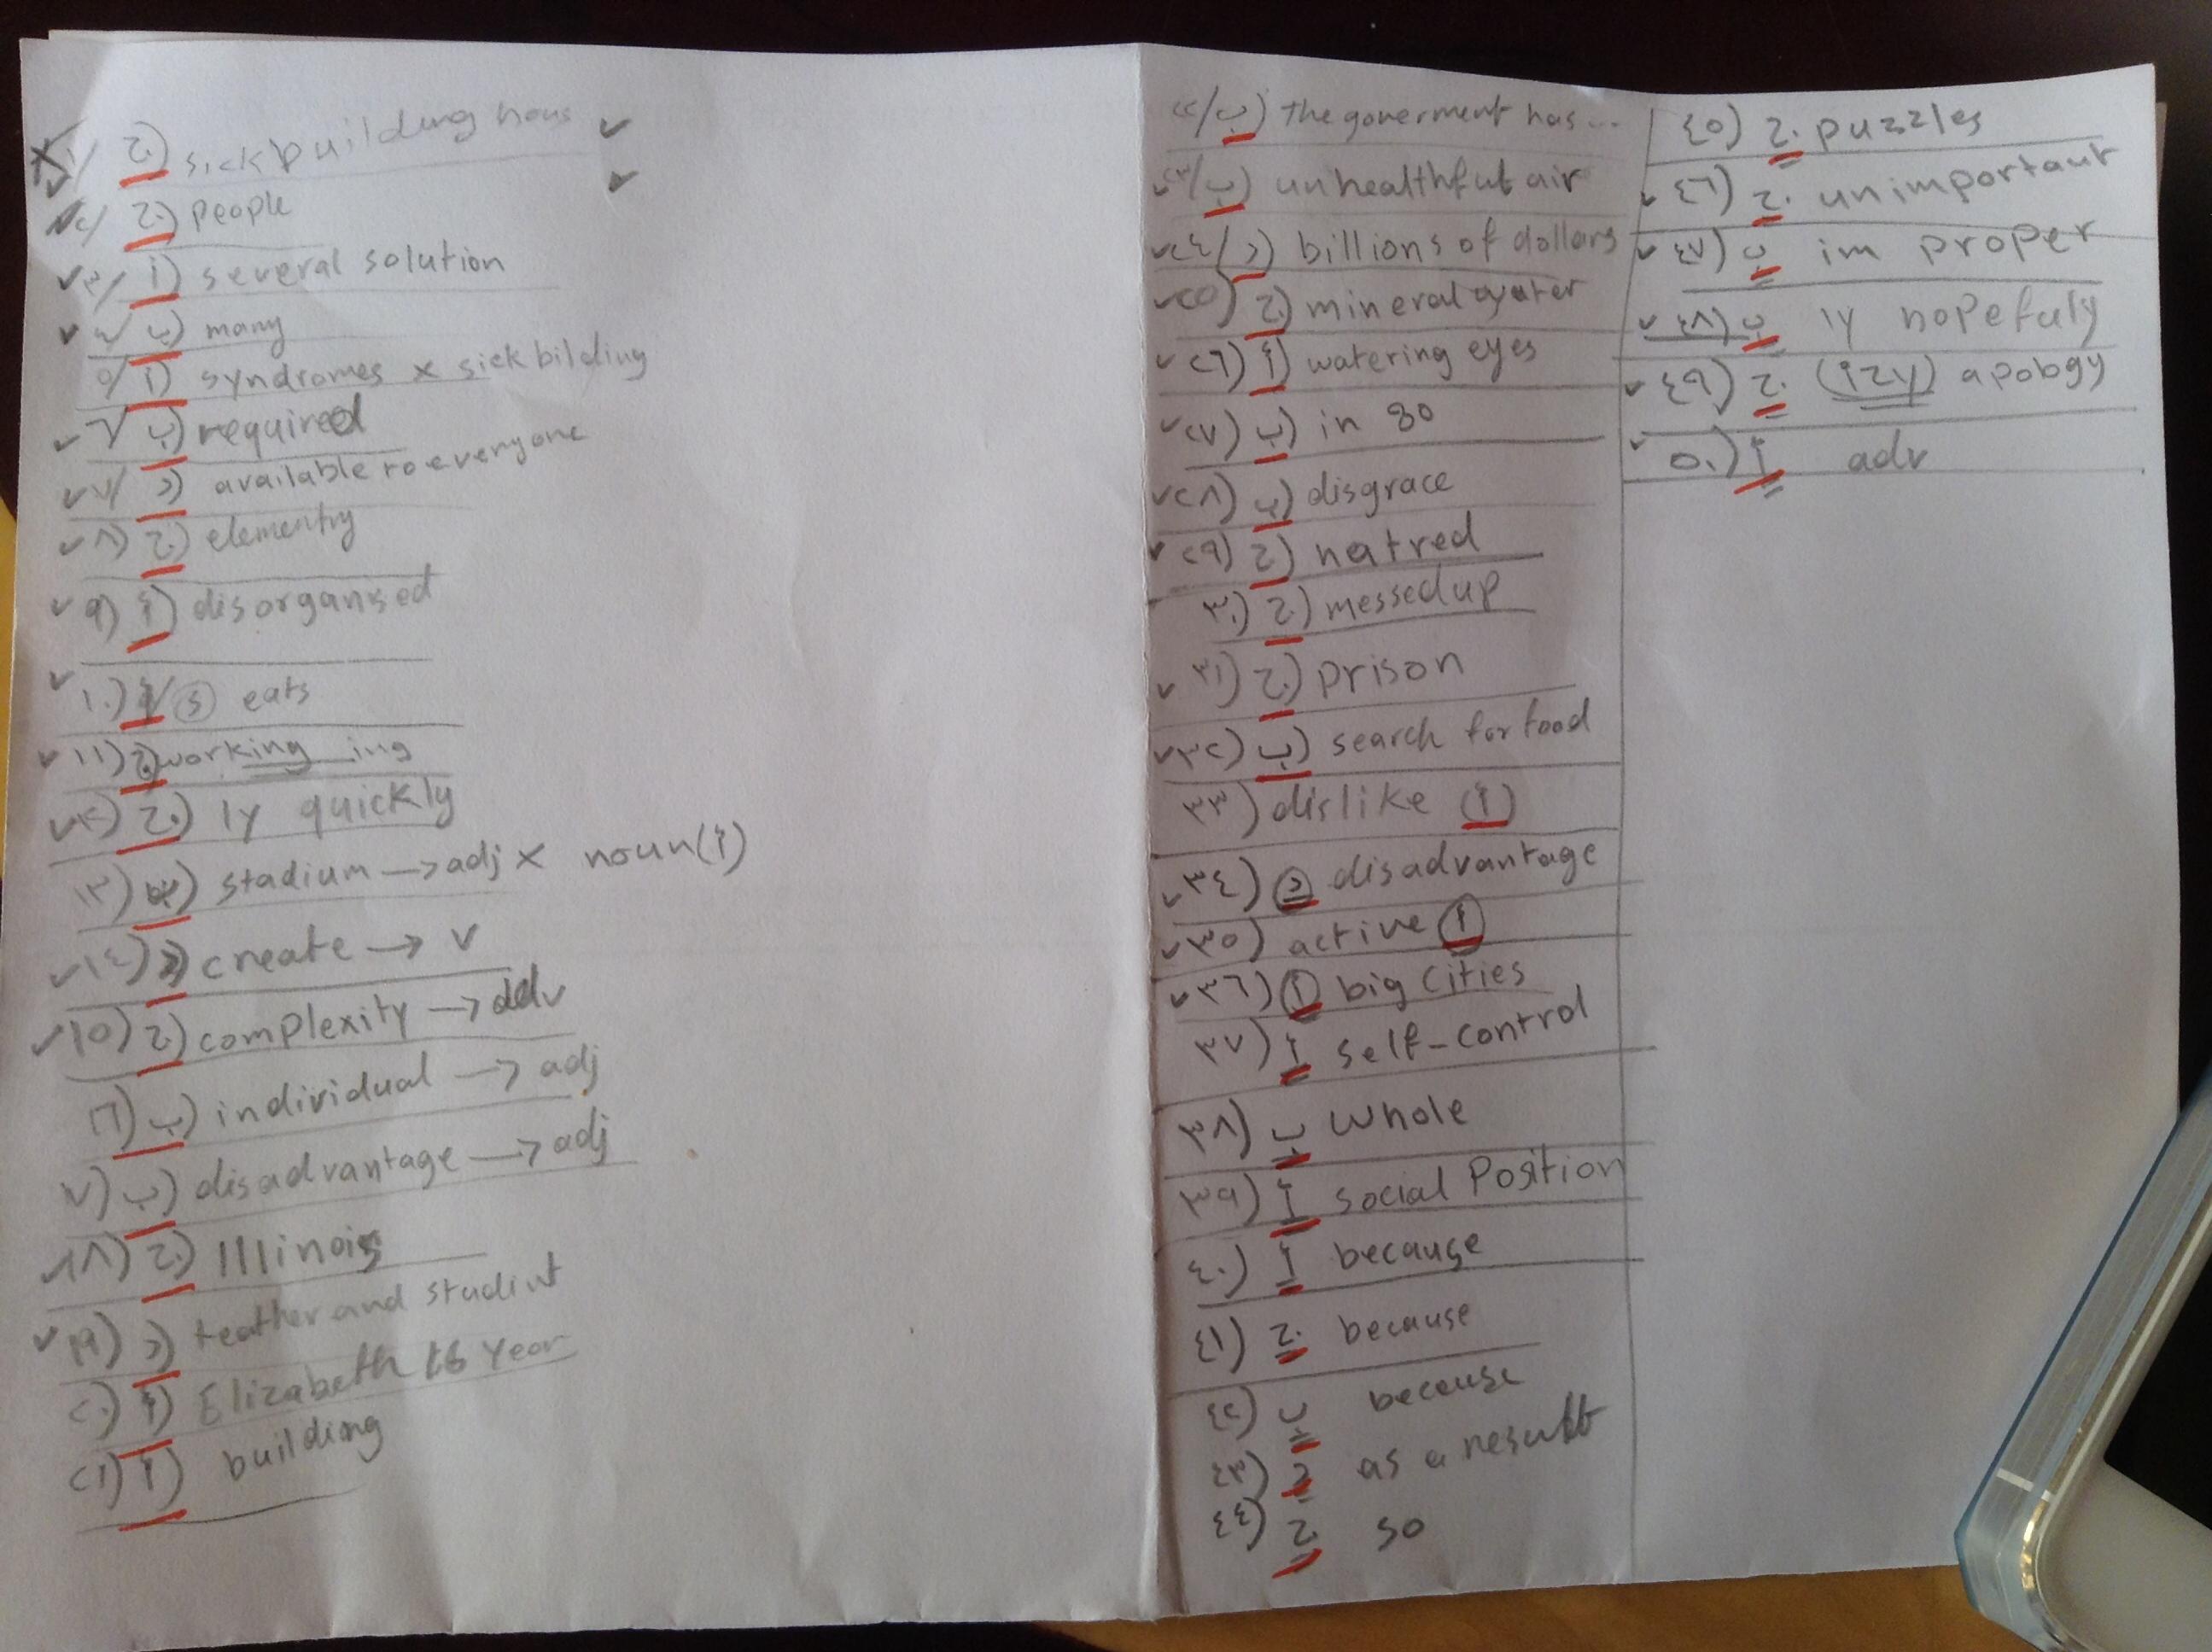 ١/ ج) sick building hous
٢/ ج) people
٣/ أ) several solution
٤/ ب) many
٥/ أ) syndromes x sick bilding
٦/ ب) required
٧/ د) available to everyone
٨) ج) elementry
٩) أ) disorganised
١٠) أ/ s eats
١١) ج) working ing
١٢) ج) ly quickly
١٣) stadium → adj x noun (أ)
١٤) د) create → v
١٥) ج) complexity → adv
١٦) ب) individual → adj
١٧) ب) disadvantage → adj
١٨) ج) Illinois
١٩) د) teather and studint
٢٠) أ) Elizabeth 16 year
٢١) أ) building
٢٢/ ب) The goverment has...
٢٣/ ب) unhealthful air
٢٤/ د) billions of dollars
٢٥) ج) mineral water
٢٦) أ) watering eyes
٢٧) ب) in 80
٢٨) ب) disgrace
٢٩) ج) hatred
٣٠) ج) messed up
٣١) ج) prison
٣٢) ب) search for food
٣٣) dislike (أ)
٣٤) د disadvantage
٣٥) active أ
٣٦) أ big cities
٣٧) أ self-control
٣٨) ب whole
٣٩) أ social Position
٤٠) أ because
٤١) ج because
٤٢) ب because
٤٣) as a result
٤٤) ج so
٤٥) ج puzzles
٤٦) ج unimportant
٤٧) ب im proper
٤٨) ب ly hopefuly
٤٩) ج (izy) apology
٥٠) أ adv